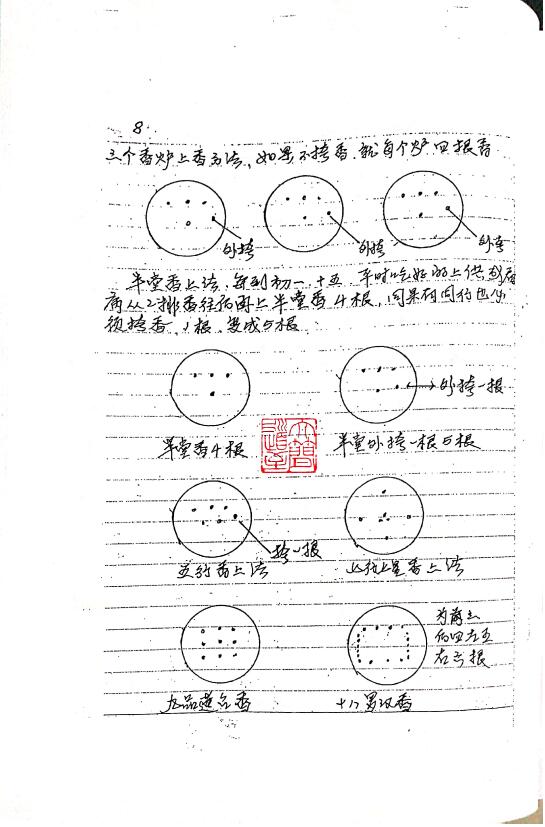 8
三个香炉上香方法,如果不挎香.就每个炉四根香
外挎
外挎
外挎
半堂香上法.每到初一、十五.平时吃好的上供.到有
病从2排香往病图上半堂香4根,问来有问行也
须挎香.1根.变成5根.
外挎一根
半堂香4根
半堂外挎一根5根
挎一根
五行香上法
七星香上法
为前三
后四左五
右六根
九品莲台香
十八罗汉香